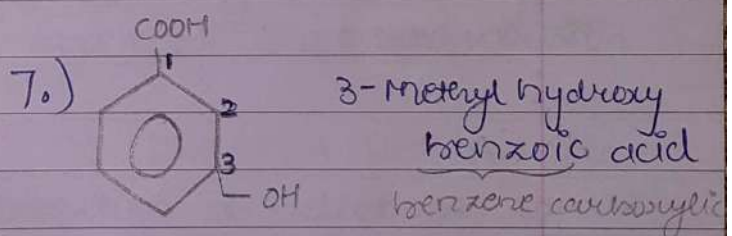 COOH
1
7.) 2 3-methyl hydroxy
benzoic acid
3
OH benzene carboxylic